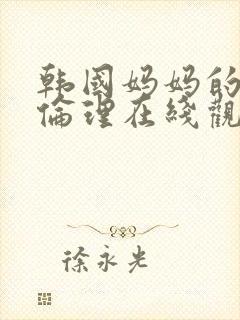 韩国妈妈的
倫理在线觀
徐永光